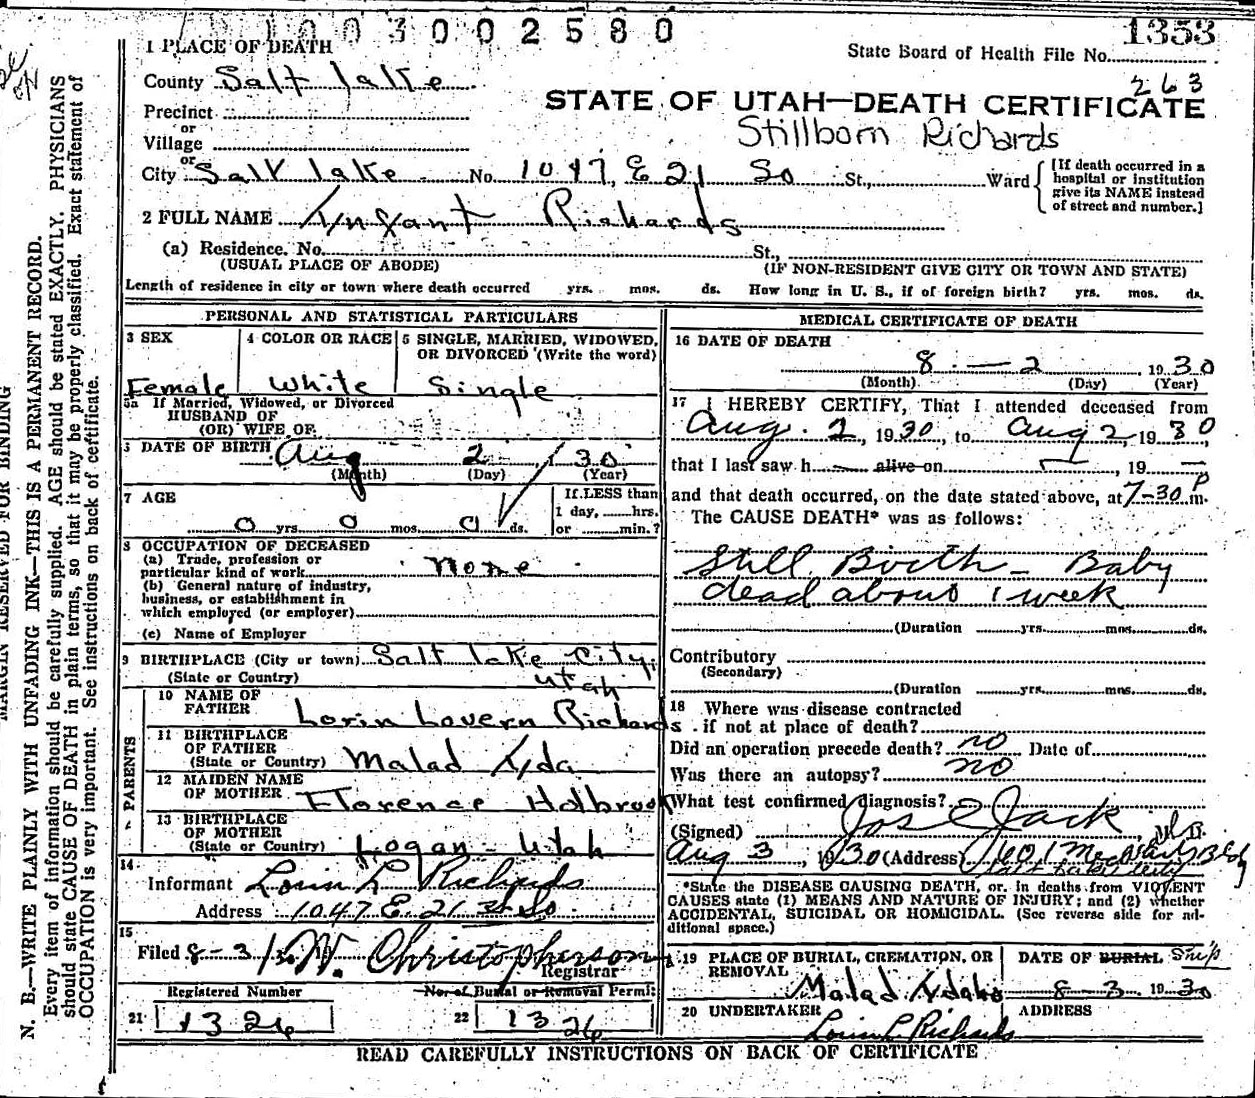 0 0 3 0 0 2 5 8 0
1353
1 PLACE OF DEATH
State Board of Health File No.
County Salt Lake
263
STATE OF UTAH—DEATH CERTIFICATE
Precinct
or
Stillborn Richards
Village
or
City Salt Lake No. 1047 E 21 So St., Ward
[If death occurred in a
hospital or institution
give its NAME instead
of street and number.]
2 FULL NAME Infant Richards
(a) Residence. No. St.,
(USUAL PLACE OF ABODE) (IF NON-RESIDENT GIVE CITY OR TOWN AND STATE)
Length of residence in city or town where death occurred yrs. mos. ds. How long in U. S., if of foreign birth? yrs. mos. ds.
PERSONAL AND STATISTICAL PARTICULARS
3 SEX
Female
4 COLOR OR RACE
White
5 SINGLE, MARRIED, WIDOWED,
OR DIVORCED (Write the word)
Single
5a If Married, Widowed, or Divorced
HUSBAND OF
(OR) WIFE OF
6 DATE OF BIRTH Aug 2 30
(Month) (Day) (Year)
7 AGE
0 yrs. 0 mos. 0 ds.
If LESS than
1 day, hrs.
or min.?
8 OCCUPATION OF DECEASED
(a) Trade, profession or
particular kind of work none
(b) General nature of industry,
business, or establishment in
which employed (or employer)
(c) Name of Employer
9 BIRTHPLACE (City or town) Salt Lake City,
(State or Country) Utah
PARENTS
10 NAME OF
FATHER Lorin Lavern Richards
11 BIRTHPLACE
OF FATHER
(State or Country) Malad Ida
12 MAIDEN NAME
OF MOTHER Florence Holbrook
13 BIRTHPLACE
OF MOTHER
(State or Country) Logan - Utah
14
Informant Lorin L Richards
Address 1047 E. 21 So
15
Filed 8-3 W. Christopherson
Registrar
Registered Number
21 1326
No. of Burial or Removal Permit
22 1326
MEDICAL CERTIFICATE OF DEATH
16 DATE OF DEATH
8 - 2 , 1930
(Month) (Day) (Year)
17 I HEREBY CERTIFY, That I attended deceased from
Aug. 2, 1930, to Aug 2, 1930,
that I last saw h alive on , 19
and that death occurred, on the date stated above, at 7-30 P m.
The CAUSE DEATH* was as follows:
Still Birth - Baby
dead about 1 week
(Duration yrs. mos. ds.
Contributory
(Secondary)
(Duration yrs. mos. ds.
18 Where was disease contracted
if not at place of death?
Did an operation precede death? no Date of
Was there an autopsy? no
What test confirmed diagnosis?
(Signed) Jos E Jack, M. D.
Aug 3, 1930 (Address) 601 Med Arts Bldg
Salt Lake City
*State the DISEASE CAUSING DEATH, or, in deaths from VIOLENT
CAUSES state (1) MEANS AND NATURE OF INJURY; and (2) whether
ACCIDENTAL, SUICIDAL OR HOMICIDAL. (See reverse side for ad-
ditional space.)
19 PLACE OF BURIAL, CREMATION, OR
REMOVAL
Malad Idaho
DATE OF BURIAL Ship
8-3 1930
20 UNDERTAKER
Lorin L Richards
ADDRESS
READ CAREFULLY INSTRUCTIONS ON BACK OF CERTIFICATE
MARGIN RESERVED FOR BINDING
N. B.—WRITE PLAINLY WITH UNFADING INK—THIS IS A PERMANENT RECORD.
Every item of information should be carefully supplied. AGE should be stated EXACTLY. PHYSICIANS
should state CAUSE OF DEATH in plain terms, so that it may be properly classified. Exact statement of
OCCUPATION is very important. See instructions on back of certificate.